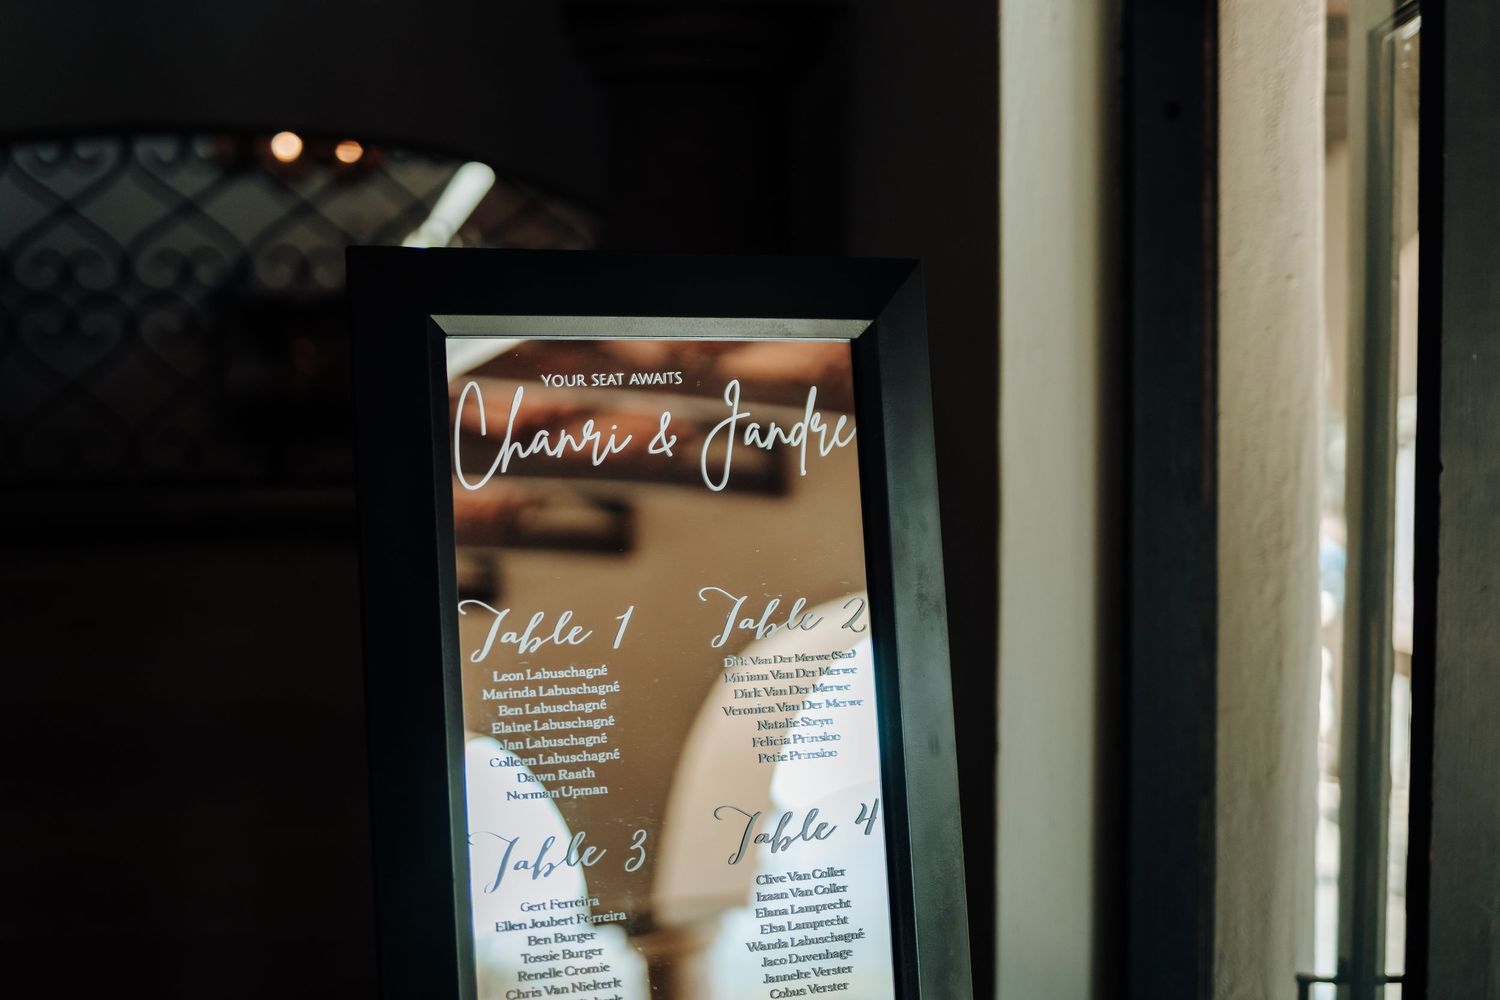 YOUR SEAT AWAITS
Chanri & Jandre
Table 1
Leon Labuschagné
Marinda Labuschagné
Ben Labuschagné
Elaine Labuschagné
Jan Labuschagné
Colleen Labuschagné
Dawn Raath
Norman Upman
Table 2
Dirk Van Der Merwe (Snr)
Miriam Van Der Merwe
Dirk Van Der Merwe
Veronica Van Der Merwe
Natalie Steyn
Felicia Prinsloo
Petie Prinsloo
Table 3
Gert Ferreira
Ellen Joubert Ferreira
Ben Burger
Tossie Burger
Renelle Cromie
Chris Van Niekerk
Table 4
Clive Van Coller
Izaan Van Coller
Elana Lamprecht
Elsa Lamprecht
Wanda Labuschagné
Jaco Duvenhage
Janneke Verster
Cobus Verster